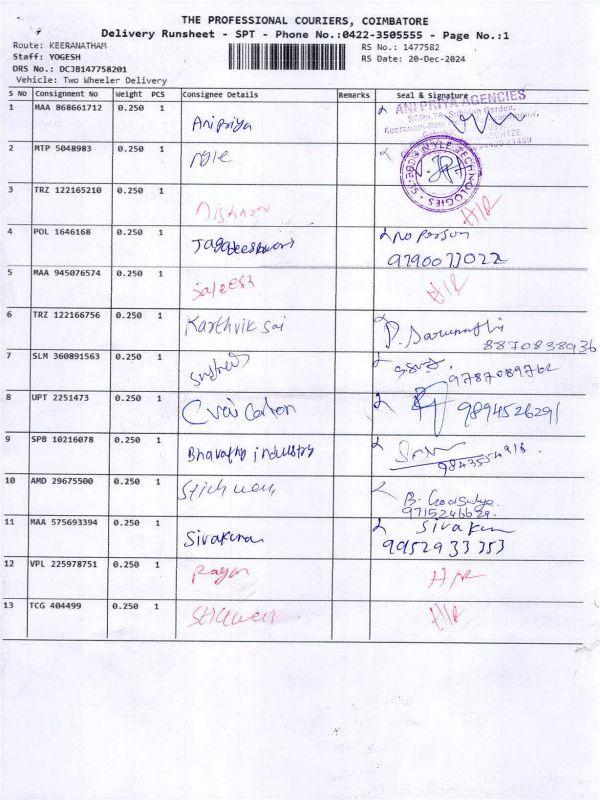 THE PROFESSIONAL COURIERS, COIMBATORE
Delivery Runsheet - SPT - Phone No.:0422-3505555 - Page No.:1
Route: KEERANATHAM
RS No.: 1477582
Staff: YOGESH
RS Date: 20-Dec-2024
DRS No.: DCJB147758201
Vehicle: Two Wheeler Delivery
S No Consignment No Weight PCS Consignee Details Remarks Seal & Signature
1 MAA 868661712 0.250 1 Anipriya ANI PRIYA AGENCIES
2 MTP 5048983 0.250 1 nyle NYLE TECHNOLOGIES
3 TRZ 122165210 0.250 1
4 POL 1646168 0.250 1 Jagadeeshwari no person
9790073022
5 MAA 945076574 0.250 1 Sateesh
6 TRZ 122166756 0.250 1 Karthvik sai
8870838936
7 SLM 360891563 0.250 1 9787089762
8 UPT 2251473 0.250 1 9894526291
9 SPB 10216078 0.250 1 industry
10 AMD 29675500 0.250 1
11 MAA 575693394 0.250 1 Sivakumar
9952933353
12 VPL 225978751 0.250 1 Rayan
13 TCG 404499 0.250 1